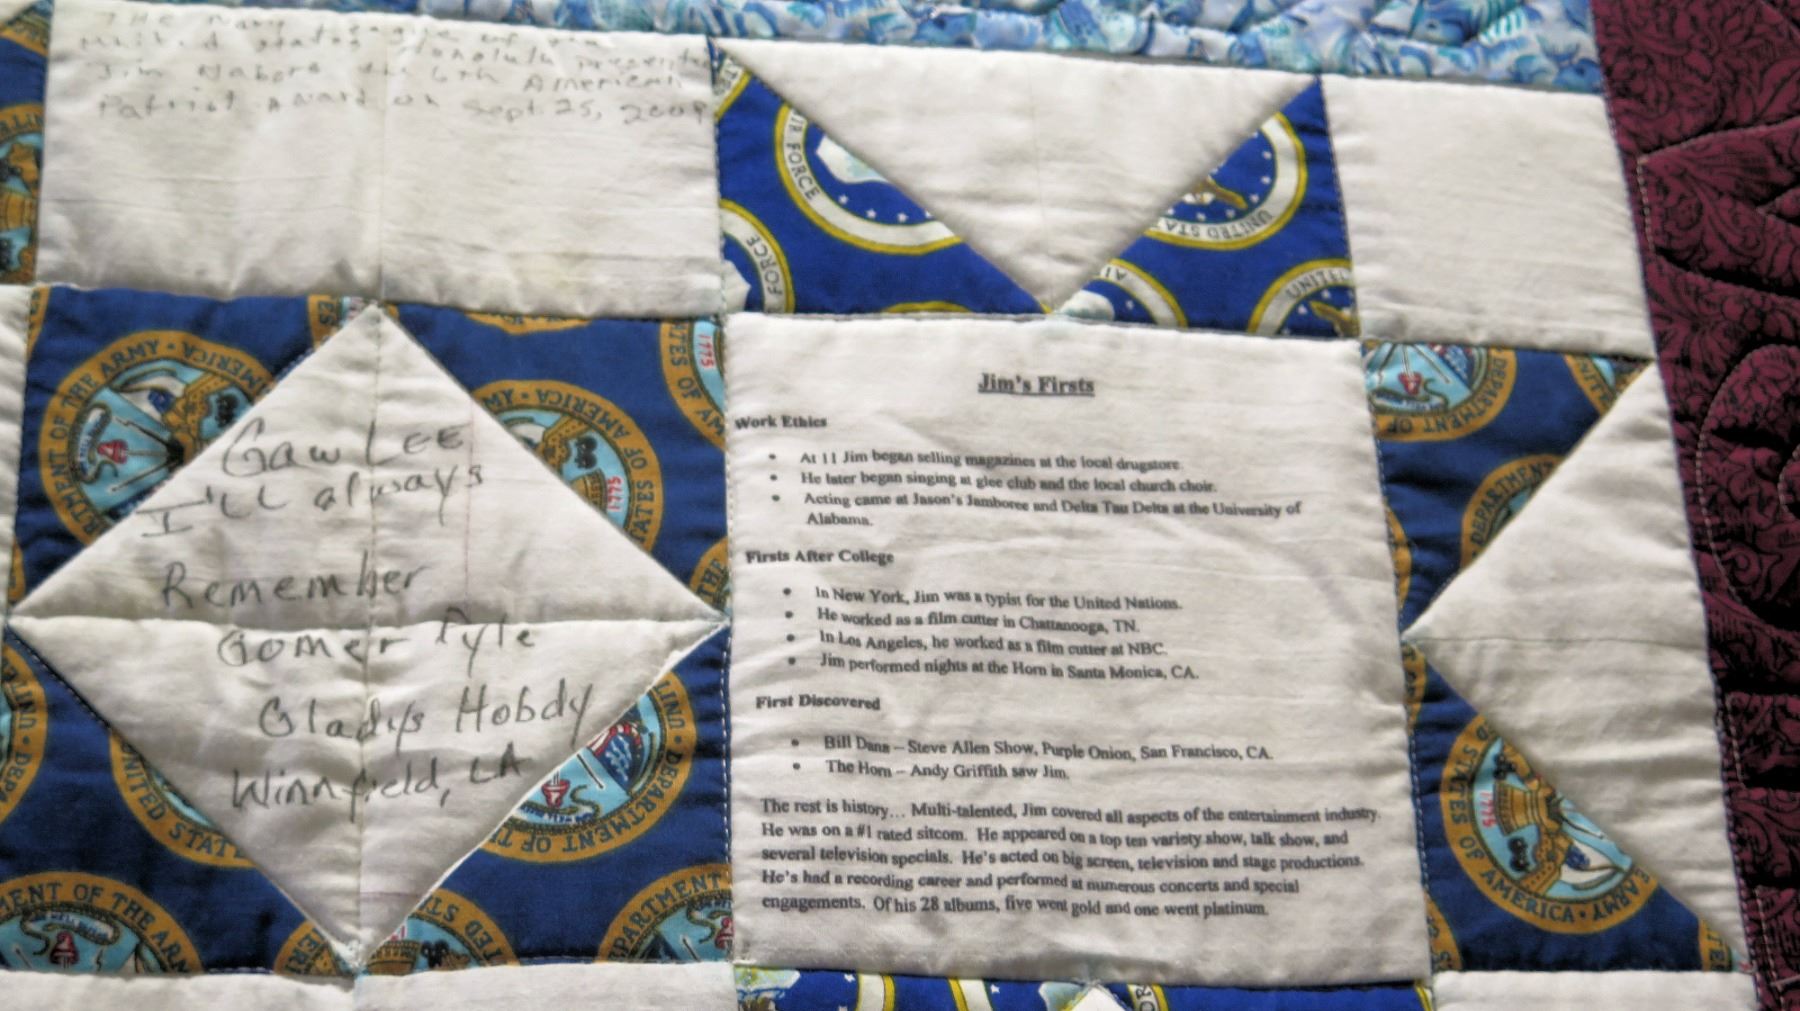 The Navy League of the
United States Honolulu presented
Jim Nabors the 6th American
Patriot Award on Sept 25, 2009
AIR FORCE
UNITED STA
FORCE
UNITED
Gaw LEE
I'LL always
Remember
Gomer Pyle
Gladys Hobdy
Winnfield, LA
Jim's Firsts
Work Ethics
• At 11 Jim began selling magazines at the local drugstore.
• He later began singing at glee club and the local church choir.
• Acting came at Jason's Jamboree and Delta Tau Delta at the University of
Alabama.
Firsts After College
• In New York, Jim was a typist for the United Nations.
• He worked as a film cutter in Chattanooga, TN.
• In Los Angeles, he worked as a film cutter at NBC.
• Jim performed nights at the Horn in Santa Monica, CA.
First Discovered
• Bill Dana – Steve Allen Show, Purple Onion, San Francisco, CA.
• The Horn – Andy Griffith saw Jim.
The rest is history… Multi-talented, Jim covered all aspects of the entertainment industry.
He was on a #1 rated sitcom. He appeared on a top ten variety show, talk show, and
several television specials. He's acted on big screen, television and stage productions.
He's had a recording career and performed at numerous concerts and special
engagements. Of his 28 albums, five went gold and one went platinum.
MENT OF THE ARMY • AMERICA
1775
STATES OF AM
MY • AMERICA
STATES OF
1775
UNITED STAT
DEPARTMENT OF T
UNITED
MENT OF THE ARM
PARTMENT
DEPARTMENT OF
DEPARTMENT
STATES OF AMERICA • ARMY
1775